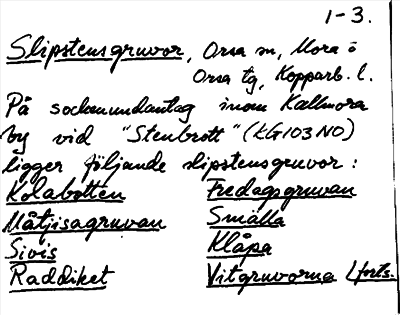 1-3.
Slipstensgruvor, Orsa sn, Mora ö
Orsa tg, Kopparb. l.
På sockenundantag inom Kallmora
by vid "Stenbrott" (KG103NO)
ligger följande slipstensgruvor:
Kolabotten Fredagsgruvan
Måtjisagruvan Smälla
Sivis Klåpa
Raddiket Vitgruvorna (forts.